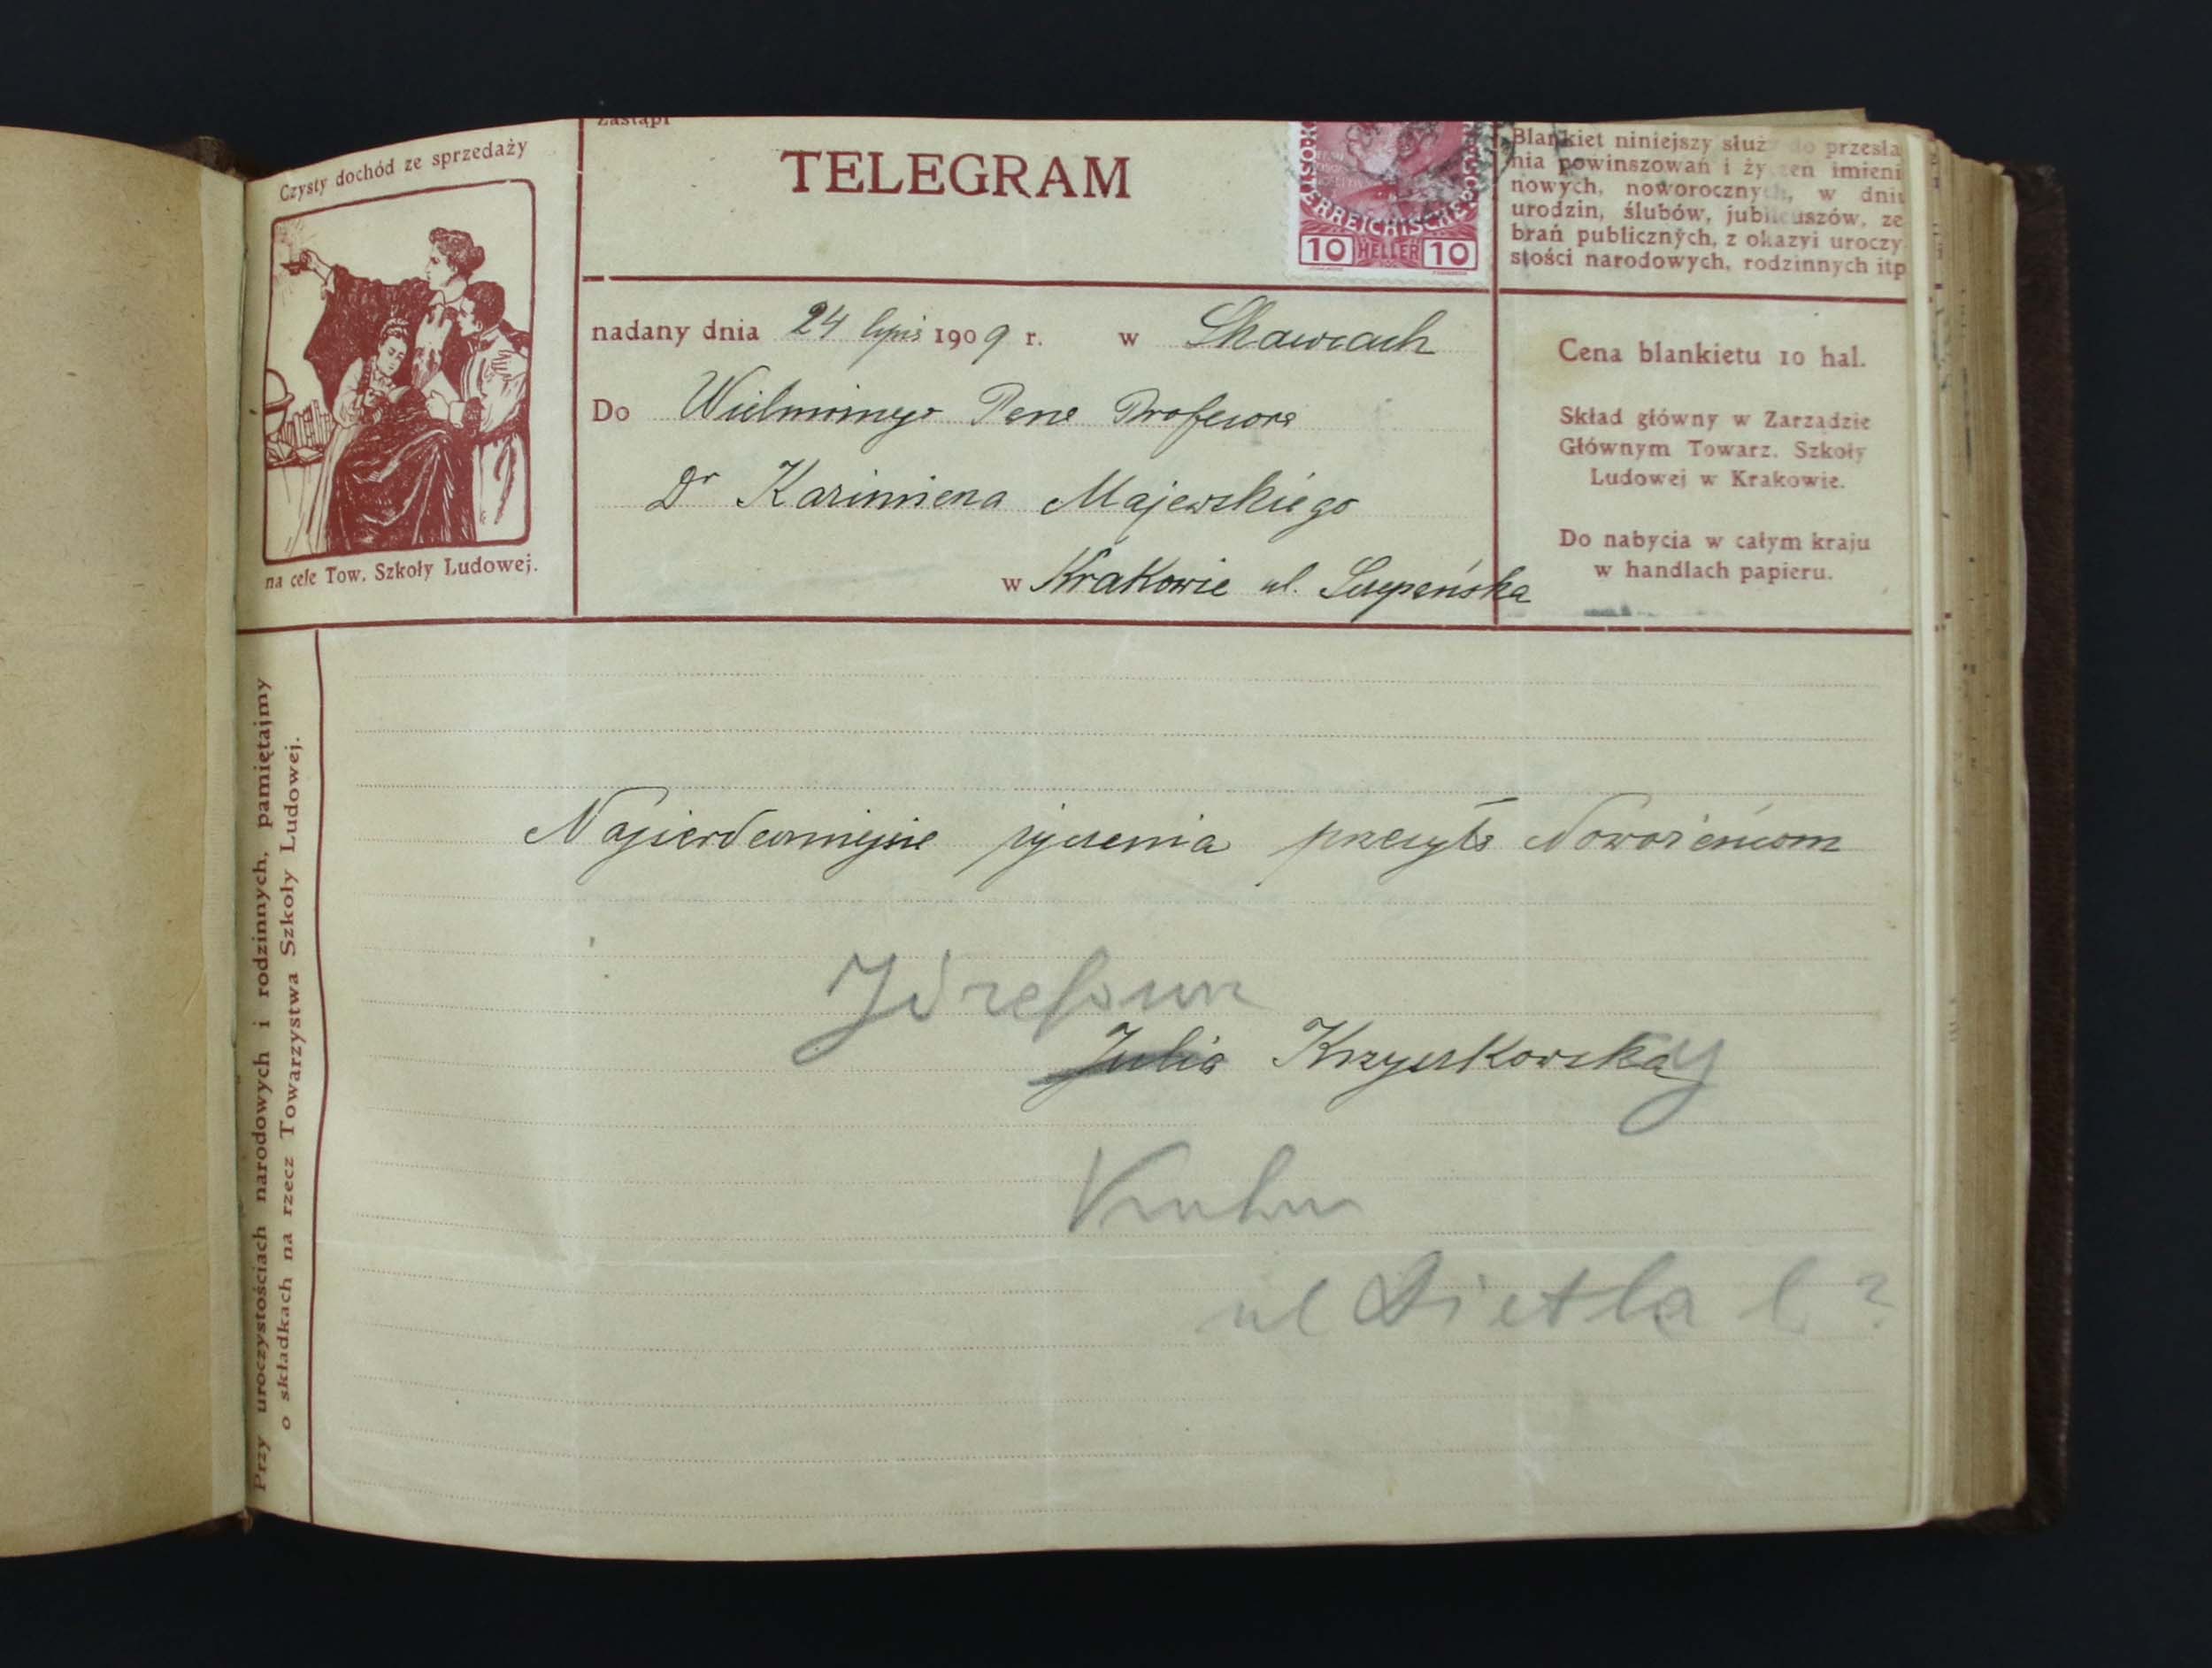 Czysty dochód ze sprzedaży
na cele Tow. Szkoły Ludowej.
zastąpi
TELEGRAM
10 HELLER 10
Blankiet niniejszy służy do przesła
nia powinszowań i życzeń imieni
nowych, noworocznych, w dniu
urodzin, ślubów, jubileuszów, ze
brań publicznych, z okazyi uroczy
stości narodowych, rodzinnych itp
nadany dnia 24 lipis 1909 r. w Skawcach
Do Wielmożnego Pana Profesora
Dr Kazimierza Majewskiego
w Krakowie ul. Szczepańska
Cena blankietu 10 hal.
Skład główny w Zarządzie
Głównym Towarz. Szkoły
Ludowej w Krakowie.
Do nabycia w całym kraju
w handlach papieru.
Przy uroczystościach narodowych i rodzinnych, pamiętajmy
o składkach na rzecz Towarzystwa Szkoły Ludowej.
Najserdeczniejsze życzenia przesyła Nowożeńcom
Józefowie
Julia Krzyszkowska y
Kraków
ul Dietla l ?